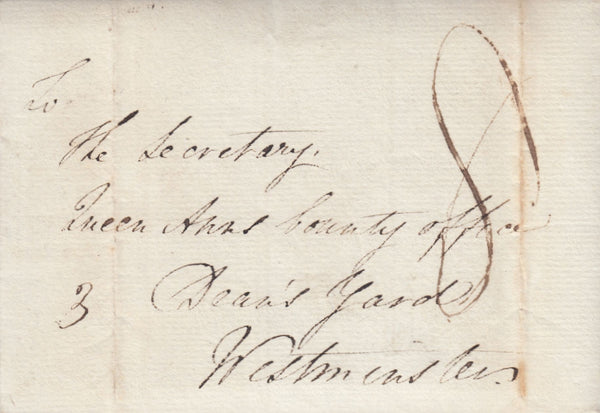 To
The Secretary.
Queen Anns bounty office 8
3 Dean's Yard
Westminster.